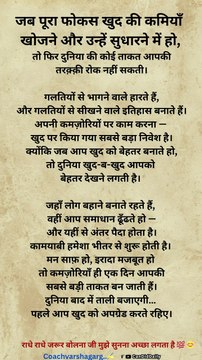 जब पूरा फोकस खुद की कमियाँ
खोजने और उन्हें सुधारने में हो,
तो फिर दुनिया की कोई ताकत आपकी
तरक़्क़ी रोक नहीं सकती।
गलतियों से भागने वाले हारते हैं,
और गलतियों से सीखने वाले इतिहास बनाते हैं।
अपनी कमज़ोरियों पर काम करना —
खुद पर किया गया सबसे बड़ा निवेश है।
क्योंकि जब आप खुद को बेहतर बनाते हो,
तो दुनिया खुद-ब-खुद आपको
बेहतर देखने लगती है।
जहाँ लोग बहाने बनाते रहते हैं,
वहीं आप समाधान ढूँढते हो —
और यहीं से अंतर पैदा होता है।
कामयाबी हमेशा भीतर से शुरू होती है।
मन साफ़ हो, इरादा मजबूत हो
तो कमज़ोरियाँ ही एक दिन आपकी
सबसे बड़ी ताकत बन जाती हैं।
दुनिया बाद में ताली बजाएगी...
पहले आप खुद को अपग्रेड करते रहिए।
राधे राधे जरूर बोलना जी मुझे सुनना अच्छा लगता है 💯😊
Coachvarshagarg...✍️